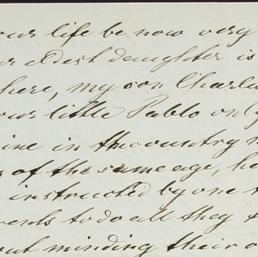 our life be now very
r eldest daughter is
here, my son Charl
our little Pablo only
ine in the country
of the same age, he
instructed by one
rents to do all they
out minding their o